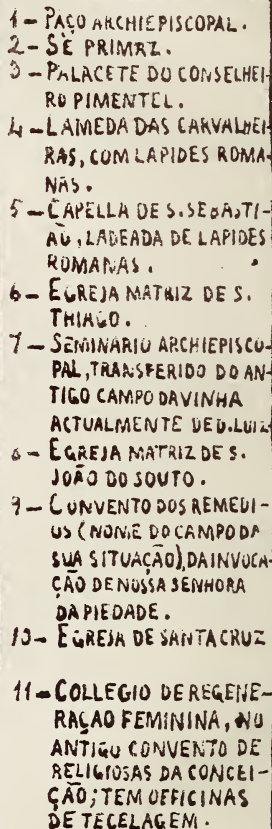 1 – PAÇO ARCHIEPISCOPAL.
2 – SÉ PRIMAZ.
3 – PALACETE DO CONSELHEI-
RO PIMENTEL.
4 – LAMEDA DAS CARVALHEI-
RAS, COM LAPIDES ROMA-
NAS.
5 – CAPELLA DE S. SEBASTI-
AÕ, LADEADA DE LAPIDES
ROMANAS.
6 – EGREJA MATRIZ DE S.
THIAGO.
7 – SEMINARIO ARCHIEPISCO-
PAL, TRANSFERIDO DO AN-
TIGO CAMPO DA VINHA
ACTUALMENTE DE D. LUIZ
8 – EGREJA MATRIZ DE S.
JOÃO DO SOUTO.
9 – CONVENTO DOS REMEDI-
OS (NOME DO CAMPO DA
SUA SITUAÇÃO), DA INVOCA-
ÇÃO DE NOSSA SENHORA
DA PIEDADE.
10 – EGREJA DE SANTA CRUZ
11 – COLLEGIO DE REGENE-
RAÇAO FEMININA, NO
ANTIGO CONVENTO DE
RELIGIOSAS DA CONCEI-
ÇÃO; TEM OFFICINAS
DE TECELAGEM.